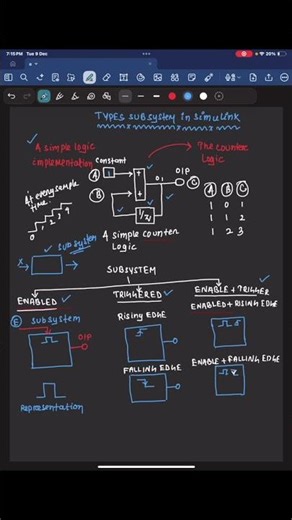 7:15 PM Tue 9 Dec
20%
TYPES SUBSYSTEM in simulink
A simple logic
implementation
constant
The counter
Logic
A
1
+
+
0 1
O/P
C
B
1/Z
A B C
1 0 1
1 1 2
1 2 3
At every sample
time.
0
1
2
3
4
A simple counter
Logic
x
subsystem
SUBSYSTEM
ENABLED
TRIGGERED
ENABLE + TRIGGER
E
subsystem
O/P
Rising EDGE
ENABLED + RISING EDGE
FALLING EDGE
ENABLE + FALLING EDGE
Representation